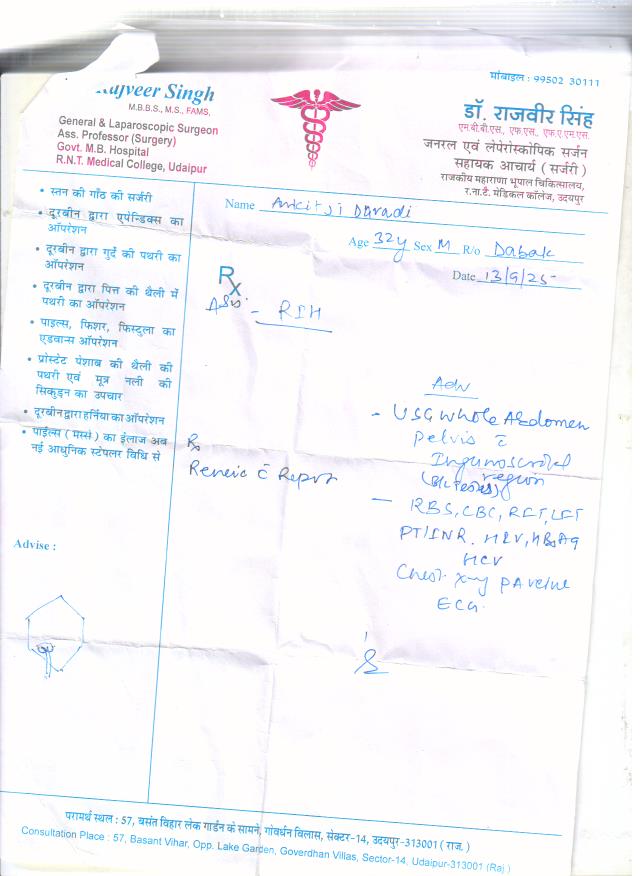 मोबाइल : 99502 30111
Rajveer Singh
M.B.B.S., M.S., FAMS,
General & Laparoscopic Surgeon
Ass. Professor (Surgery)
Govt. M.B. Hospital
R.N.T. Medical College, Udaipur
डॉ. राजवीर सिंह
एम.बी.बी.एस., एफ.एस., एफ.ए.एम.एस.
जनरल एवं लेपेरोस्कोपिक सर्जन
सहायक आचार्य (सर्जरी)
राजकीय महाराणा भूपाल चिकित्सालय,
र.ना.टै. मेडिकल कॉलेज, उदयपुर
• स्तन की गाँठ की सर्जरी
• दूरबीन द्वारा एपेन्डिक्स का
ऑपरेशन
• दूरबीन द्वारा गुर्दे की पथरी का
ऑपरेशन
• दूरबीन द्वारा पित्त की थैली में
पथरी का ऑपरेशन
• पाइल्स, फिशर, फिस्टुला का
एडवान्स ऑपरेशन
• प्रोस्टेट पेशाब की थैली की
पथरी एवं मूत्र नली की
सिकुड़न का उपचार
• दूरबीन द्वारा हर्निया का ऑपरेशन
• पाईल्स (मस्से) का ईलाज अब
नई आधुनिक स्टेपलर विधि से
Advise :
Name Ankit ji Daradi
Age 32y Sex M R/o Dabak
Date 13/9/25
Rx
- RIH
Adv
- USG Whole Abdomen
Pelvis c̄
region
- RBS, CBC, RFT, LFT
PT/INR, HIV, HBsAg
HCV
Chest X-ray PA view
ECG.
Rx
c̄ Report
परामर्थ स्थल : 57, बसंत विहार लेक गार्डन के सामने, गोवर्धन विलास, सेक्टर-14, उदयपुर-313001 ( राज. )
Consultation Place : 57, Basant Vihar, Opp. Lake Garden, Goverdhan Villas, Sector-14, Udaipur-313001 (Raj.)